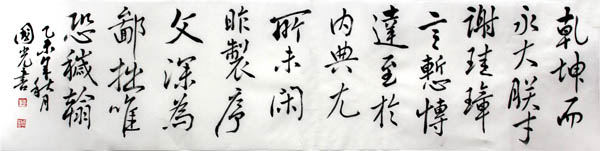 乾坤而
永大朕才
謝珪璋
言慙博
達至於
內典尤
所未閑
昨製序
文深為
鄙拙唯
恐穢翰
乙未年秋月
國光書